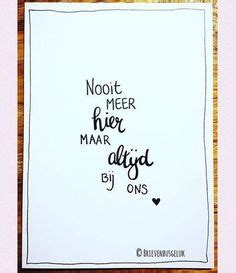 Nooit
MEER
hier
MAAR
altijd
BIJ
ONS
© BRIEVENBUSGELUK